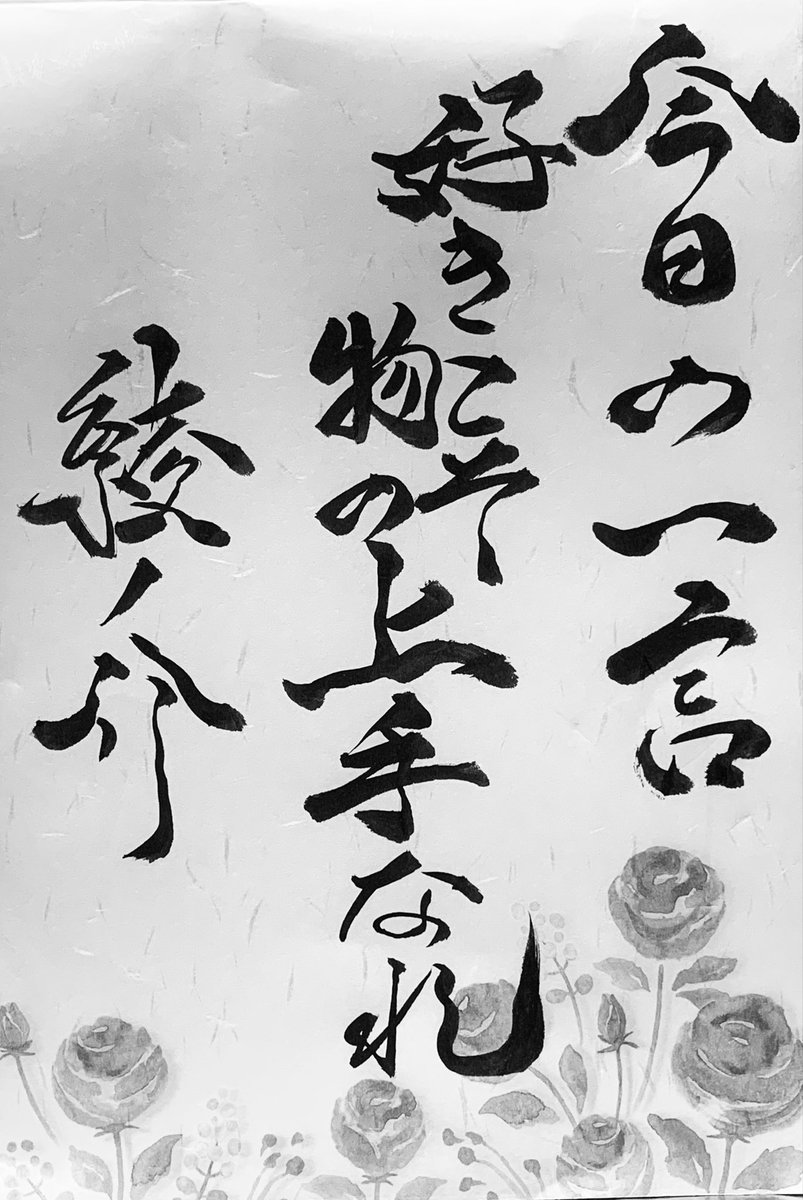 今日の一言
好きこそ
物の上手なれ
綾ノ介